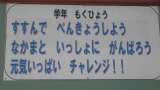 学年 もくひょう
すすんで べんきょうしよう
なかまと いっしょに がんばろう
元気いっぱい チャレンジ!!